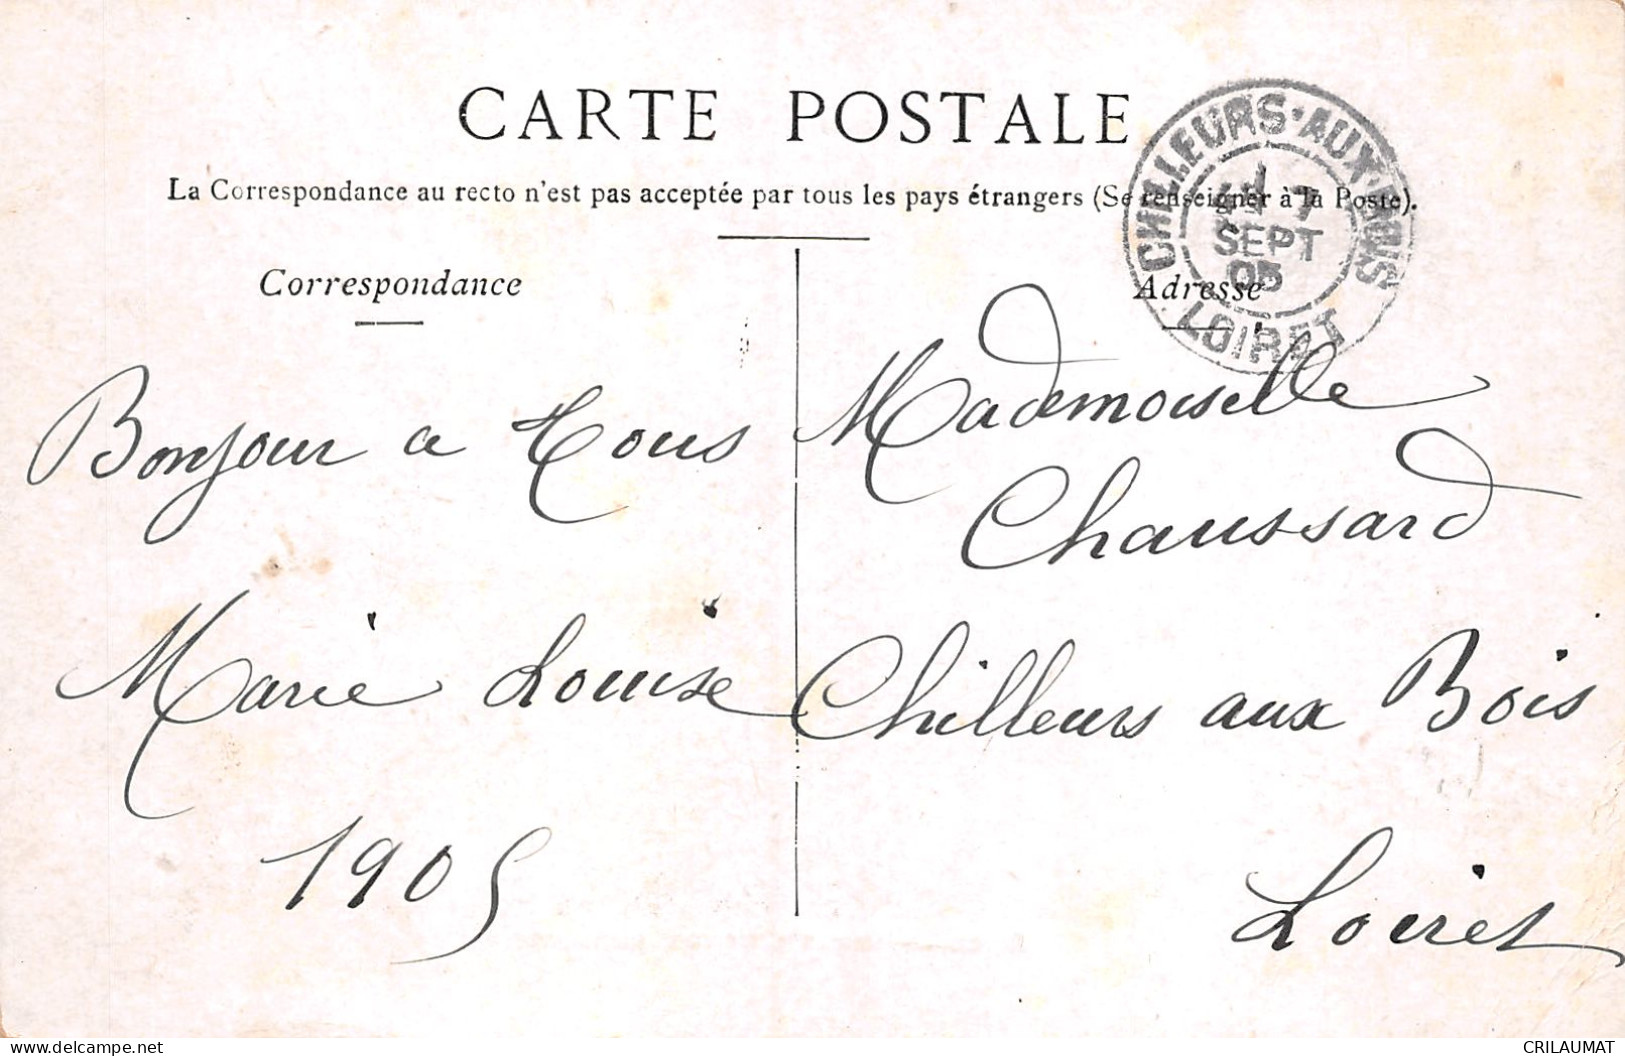 CARTE POSTALE
La Correspondance au recto n'est pas acceptée par tous les pays étrangers (Se renseigner à la Poste).
CHILLEURS-AUX-BOIS
7
SEPT
05
LOIRET
Correspondance
Bonjour a Tous
Marie Louise
1905
Adresse
Mademoiselle
Chaussard
Chilleurs aux Bois
Loiret
delcampe.net
CRILAUMAT